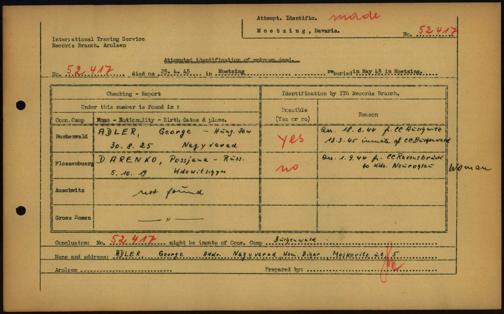 Attempt. Identific. made
Moetzing, Bavaria.
No. 52.417
International Tracing Service
Records Branch, Arolsen
Attempted identification of unknown dead.
No. 52.417 died on 20. 4. 45 in Moetzing buried in May 45 in Moetzing.
Checking - Report
Identification by ITS Records Branch.
Under this number is found in :
Possible
(Yes or no)
Reason
Conc. Camp Name - Nationality - Birth dates & place.
Buchenwald ADLER, George - Hung. Jew
30. 8. 25 Nagyvarad
yes
Arr. 18.6.44 fr. CC Auschwitz
13.3.45 inmate of CC Buchenwald
Flossenbuerg DARENKO, Possjana - Russ.
5. 10. 19
no
Arr. 1.9.44 fr. CC Ravensbrück
to Kdo. Neurohlau
Woman
Auschwitz not found
Gross Rosen — " —
Conclusion: No. 52.417 might be inmate of Conc. Camp Buchenwald
Name and address: ADLER George Addr. Nagyvarad Kom. Bihar Moskovits 5
Arolsen Prepared by: